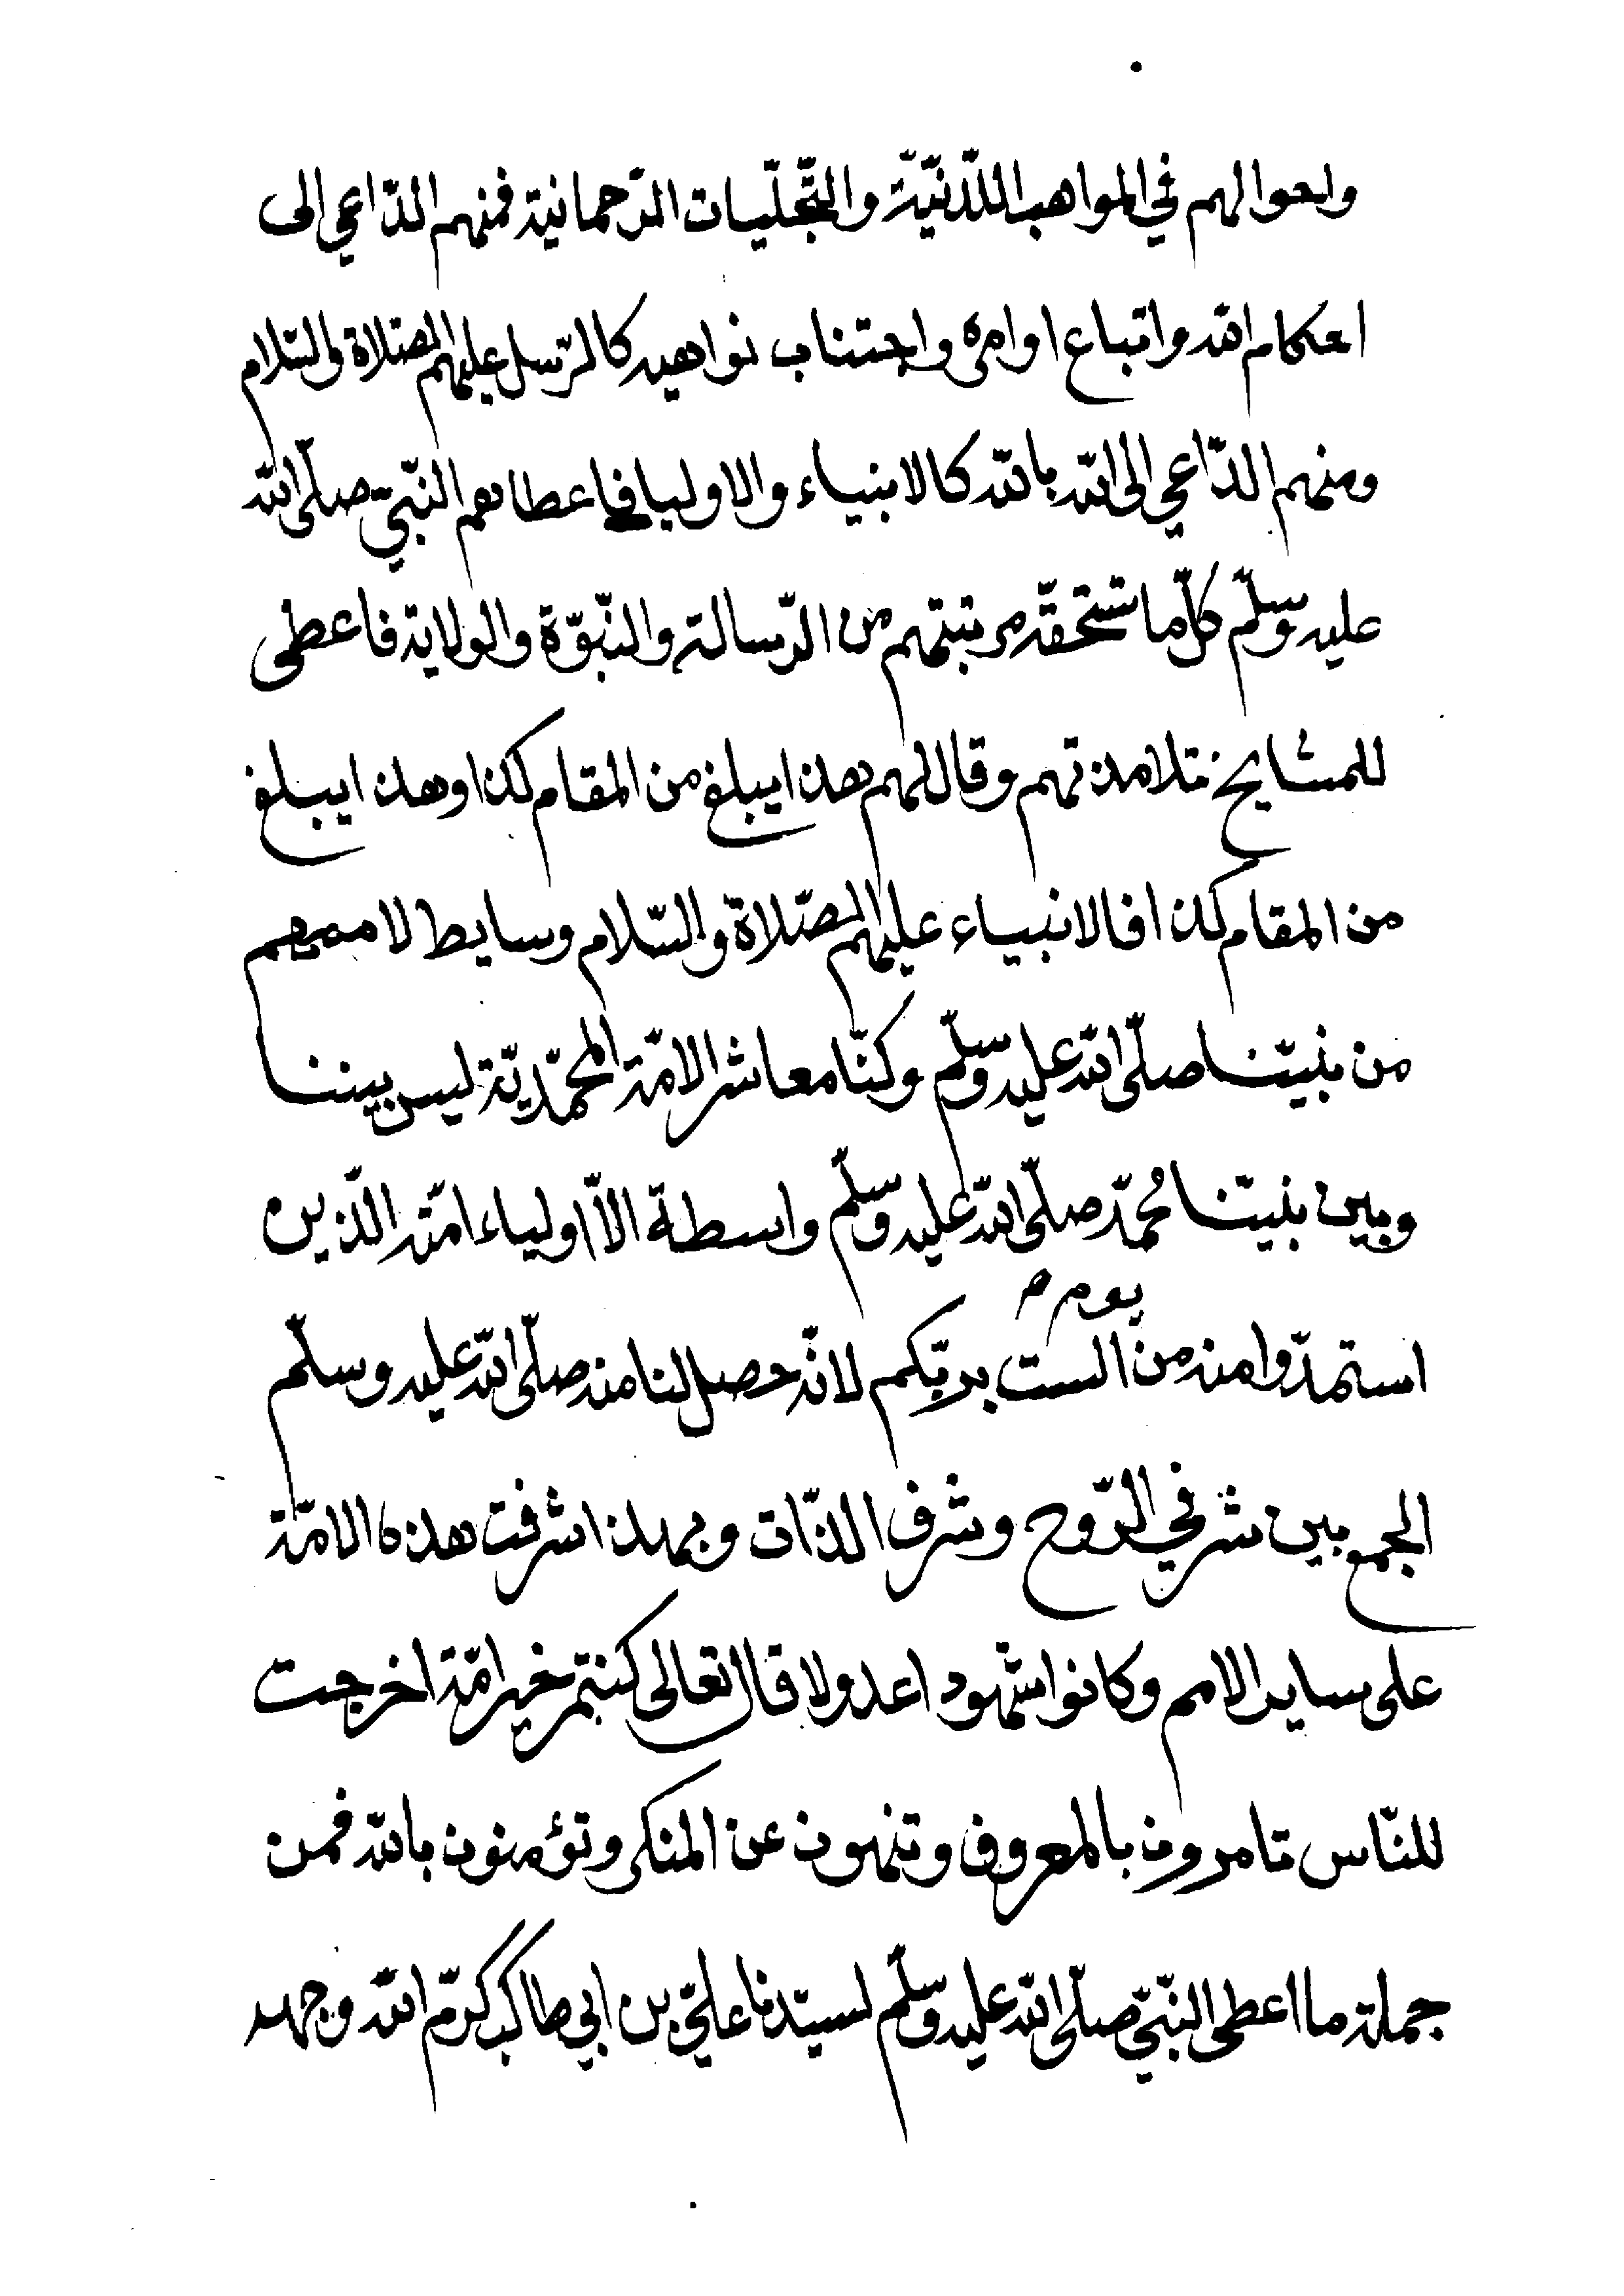 واحوالهم في المواهب اللّدنّيّة والتّجّلّيات الرّحمانية فمنهم الدّاعي الى
احكام الله واتباع اوامره واجتناب نواهيه كالرّسل عليهم الصّلاة والسّلام
ومنهم الدّاعي الى الله بالله كالانبياء والاوليا فاعطاهم النّبيّ صلّى الله
عليه وسلّم كلّ ما تستحقّه مرتبتهم من الرّسالة والنّبوّة والولاية فاعطى
للمشايخ تلامذتهم وقال لهم هذا يبلغ من المقام كذا وهذا يبلغ
من المقام كذا فالانبياء عليهم الصّلاة والسّلام وسايط لاممهم
من نبيّنا صلّى الله عليه وسلّم وكنّا معاشر الامّة المحمّديّة ليس بيننا
وبين نبيّنا محمّد صلّى الله عليه وسلّم واسطة الّا اولياء امّته الّذين
استمدّوا منه من يوم الست بربّكم لانّه حصل لنا منه صلّى الله عليه وسلّم
الجمع بين شرفي الرّوح وشرف الذّات وبهذا شرفت هذه الامّة
على ساير الامم وكانوا شهودا عدولا قال تعالى كنتم خير امّة اخرجت
للنّاس تامرون بالمعروف وتنهون عن المنكر وتؤمنون بالله فمن
جملة ما اعطى النّبيّ صلّى الله عليه وسلّم لسيّدنا عليّ بن ابي طالب كرّم الله وجهه